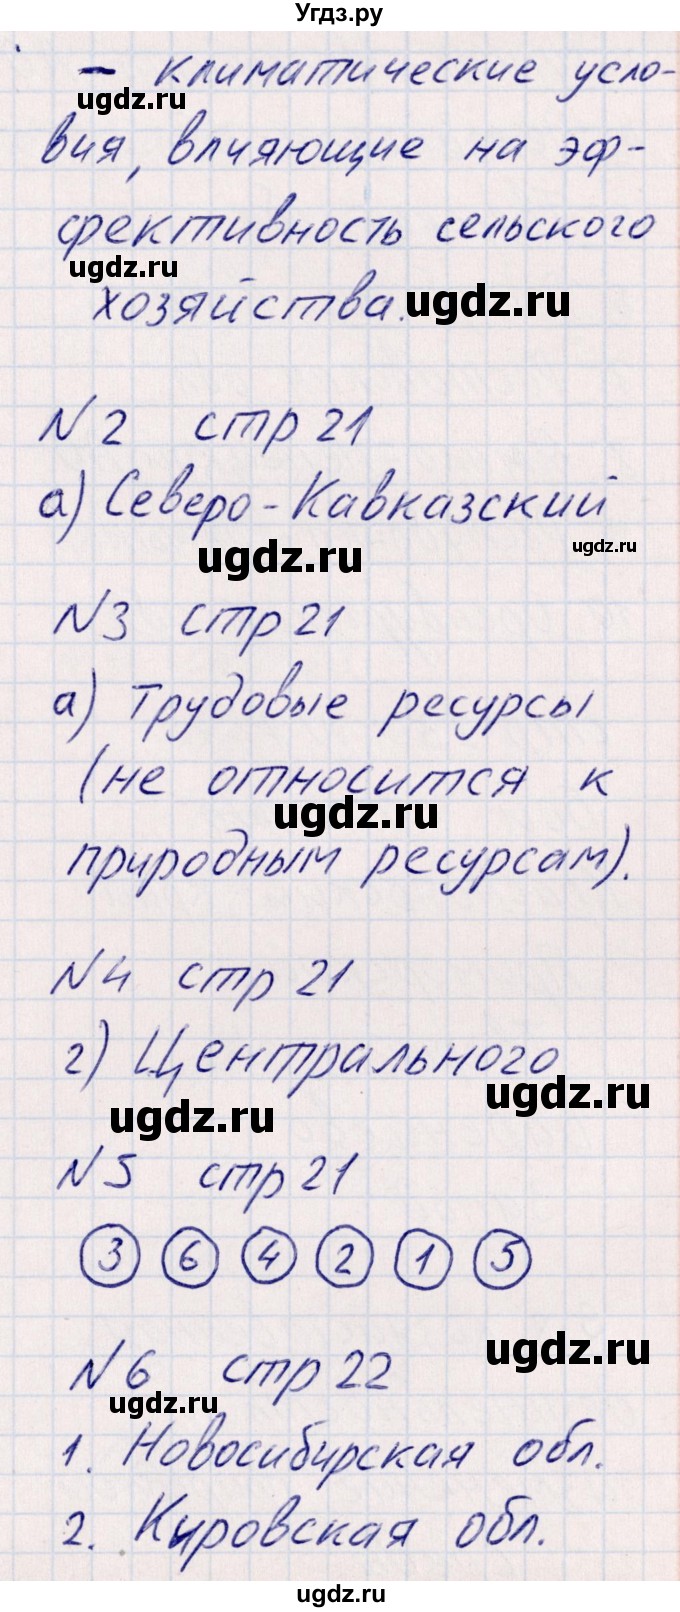 Угдз.ру
– климатические усло-
ugdz.ru
вия, влияющие на эф-
фективность сельского
ugdz.ru
хозяйства.
ugdz.ru
№2 стр 21
а) Северо-Кавказский
ugdz.ru
ugdz.ru
№3 стр 21
а) Трудовые ресурсы
(не относится к
ugdz.ru
природным ресурсам).
№4 стр 21
г) Центрального
ugdz.ru
ugdz.ru
№5 стр 21
3 6 4 2 1 5
ugdz.ru
№6 стр 22
ugdz.ru
1. Новосибирская обл.
2. Кировская обл.
ugdz.ru